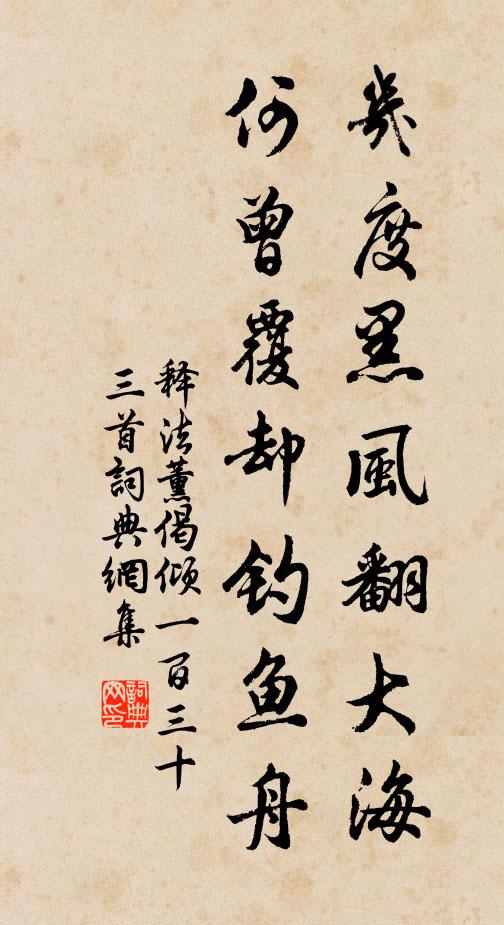 幾度黑風翻大海
何曾覆却钓鱼舟
释法薰偈倾一百三十
三首詞典網集
詞典
网印